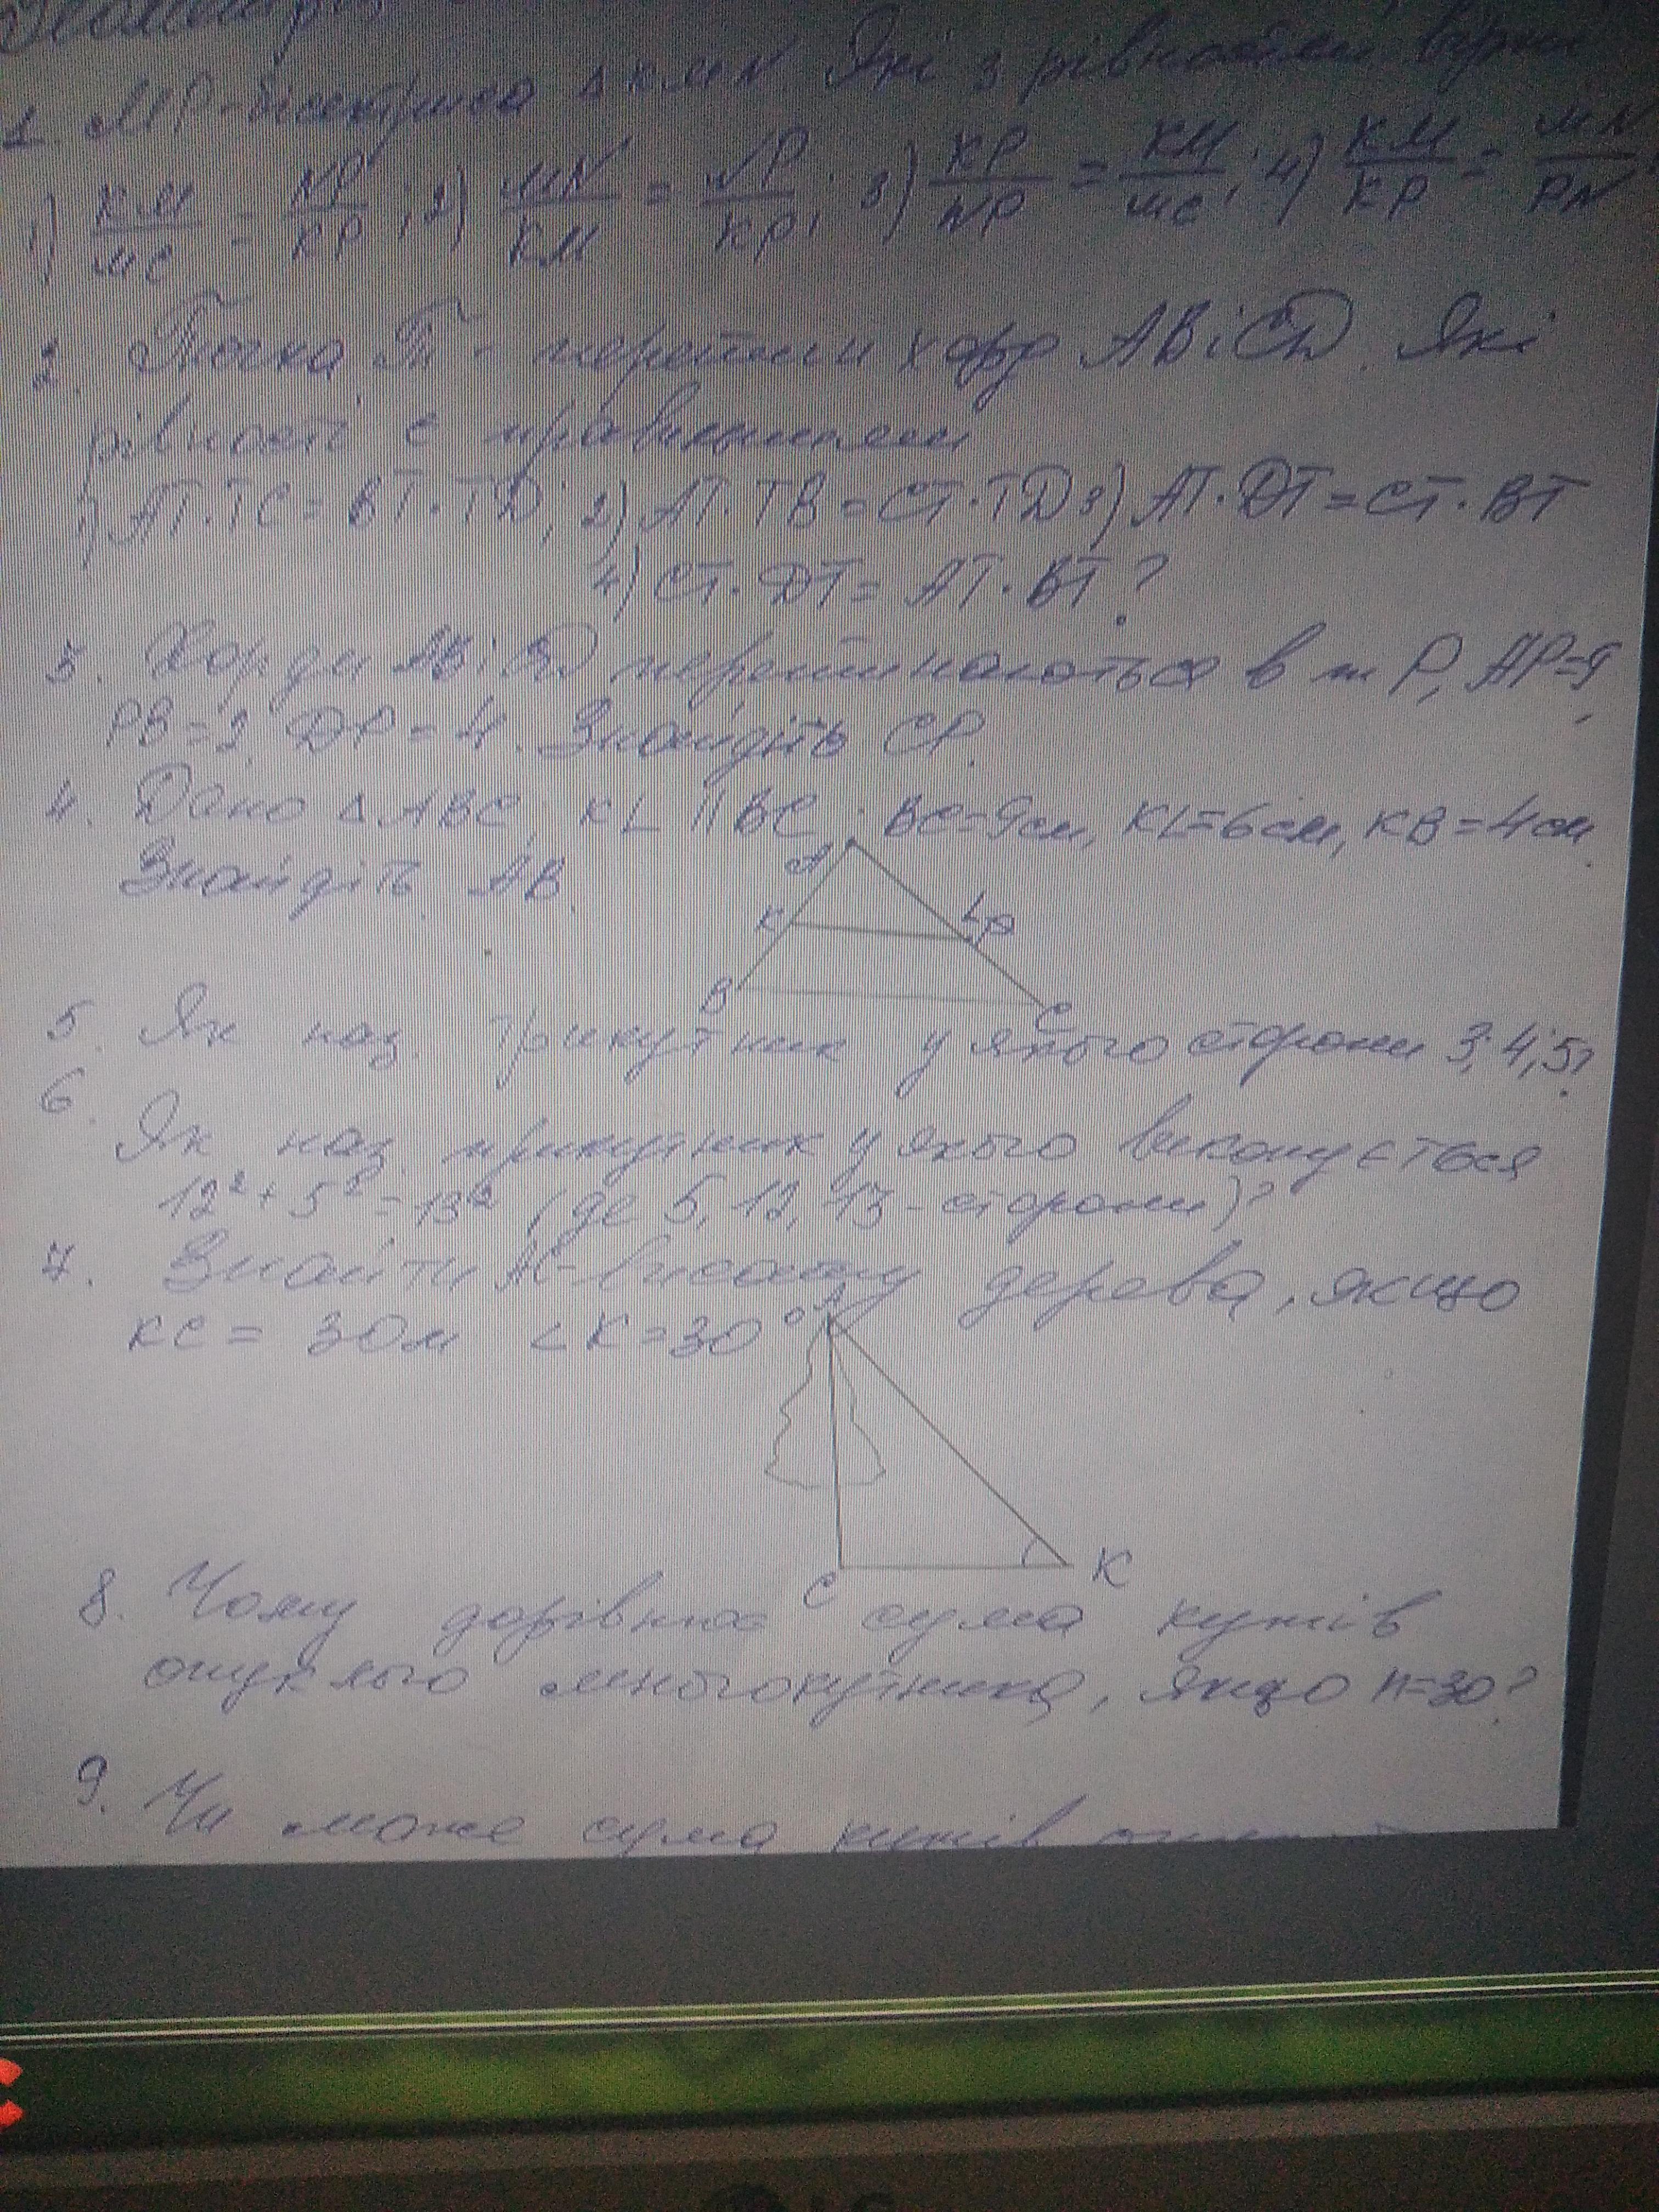 1. МР-бісектриса △KMN. Які з рівностей вірні
1) KM/MC = NP/KP; 2) MN/KM = NP/KP; 3) KP/NP = KM/MC; 4) KM/KP = MN/PN
2. Точка Т - перетин хорд AB і CD. Які
рівності є правильними
1) AT·TC = BT·TD; 2) AT·TB = CT·TD 3) AT·DT = CT·BT
4) CT·DT = AT·BT?
3. Хорди AB і CD перетинаються в т P, AP=9,
PB=2, DP=4. Знайдіть CP.
4. Дано △ABC, KL ∥ BC, BC=9см, KL=6см, KB=4см
Знайдіть AB.
A
K L
B C
5. Як наз. трикутник у якого сторони 3; 4; 5?
6.
Як наз. трикутник у якого виконується
12² + 5² = 13² (де 5, 12, 13 - сторони)?
7. Знайти AC-висоту дерева, якщо
KC = 30м ∠K=30°
A
C K
8. Чому дорівнює сума кутів
опуклого многокутника, якщо n=30?
9. Чи може сума кутів